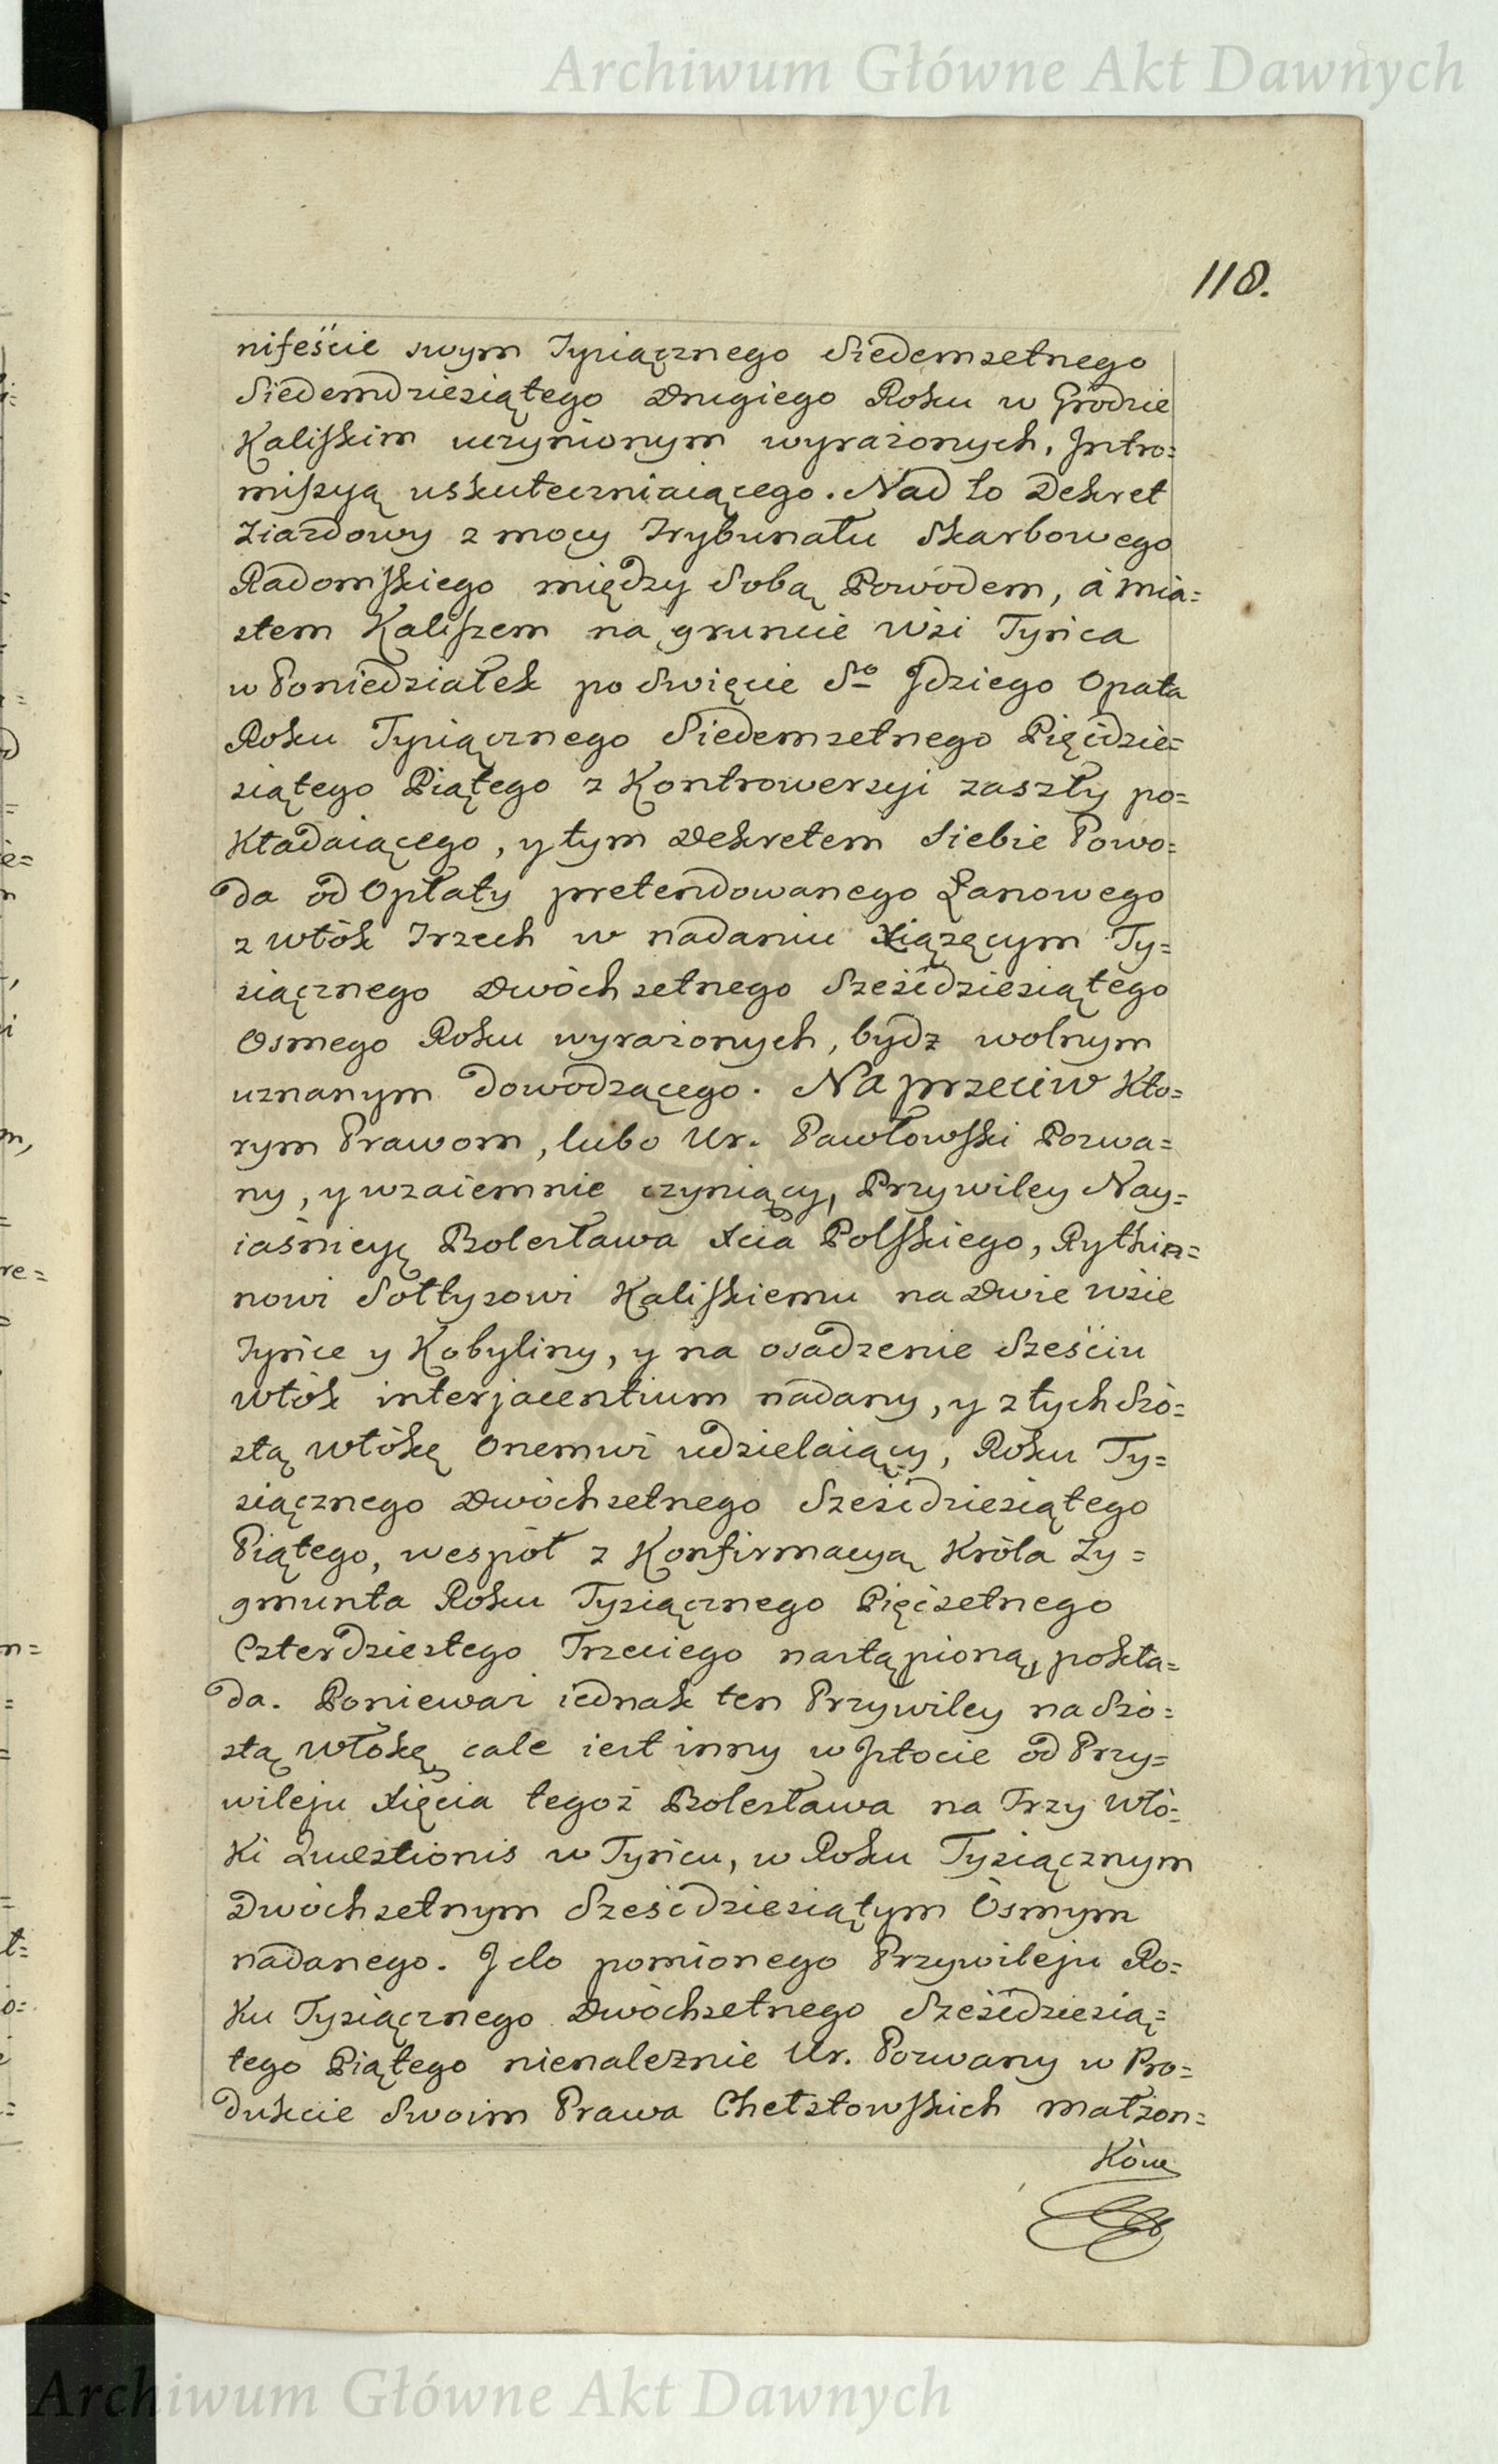 Archiwum Główne Akt Dawnych
118.
nifeście swym Tysiącznego Siedemsetnego
Siedemdziesiątego Drugiego Roku w Grodzie
Kaliskim uczynionym wyrażonych, Intro=
missyą uskuteczniaiącego. Nad to Dekret
Ziazdowy z mocy Trybunału Skarbowego
Radomskiego między Sobą Powodem, á mia=
stem Kaliszem na gruncie wśi Tyńca
w Poniedziałek po Swięcie Sgo Jdziego Opata
Roku Tysiącznego Siedemsetnego Pięćdzie=
siątego Piątego z Kontrowersyi zaszły po=
kładaiącego, y tym Dekretem Siebie Powo=
da od Opłaty pretendowanego Łanowego
z włók Trzech w nadaniu Xiążęcym Ty=
siącznego Dwóchsetnego Sześćdziesiątego
Osmego Roku wyrażonych, bydz wolnym
uznanym dowodzącego. Na przeciw kto=
rym Prawom, lubo Ur. Pawłowski Pozwa=
ny, y wzaiemnie czyniący, Przywiley Nay=
iaśnieyę Bolesława Xcia Polskiego, Rythin=
nowi Sołtysowi Kaliskiemu na Dwie wśie
Tyńce y Kobyliny, y na osadzenie Sześciu
włók interjacentium nadany, y z tych Szó=
stą włókę Onemuż udzielaiący, Roku Ty=
siącznego Dwóchsetnego Sześćdziesiątego
Piątego, wespół z Konfirmacyą Króla Zy=
gmunta Roku Tysiącznego Pięćsetnego
Czterdziestego Trzeciego nastąpioną, pokła=
da. Ponieważ iednak ten Przywiley na Szó=
stą włókę cale iest inny w Jstocie od Przy=
wileju Xięcia tegoż Bolesława na Trzy Włó=
ki Questionis w Tyńcu, w Roku Tysiącznym
Dwóchsetnym Sześćdziesiątym Osmym
nadanego. J do pomionego Przywileju Ro=
ku Tysiącznego Dwóchsetnego Sześćdziesią=
tego Piątego nienależnie Ur. Pozwany w Pro=
dukcie Swoim Prawa Chełstowskich małżon=
ków
Archiwum Główne Akt Dawnych